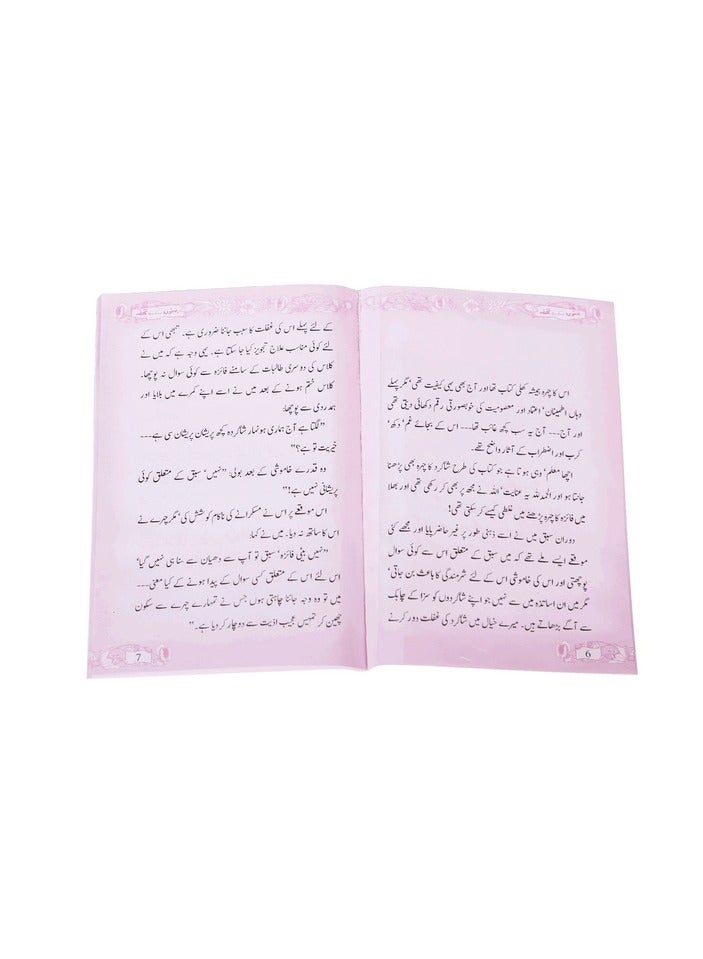 اس کا چہرہ ہمیشہ کھلی کتاب تھا اور آج بھی یہی کیفیت تھی‘ مگر پہلے
وہاں اطمینان‘ اعتماد اور معصومیت کی خوبصورتی رقم دکھائی دیتی تھی
اور آج--- آج یہ سب کچھ غائب تھا--- اس کے بجائے غم‘ دکھ‘
کرب اور اضطراب کے آثار واضح تھے۔
اچھا معلم‘ وہی ہوتا ہے جو کتاب کی طرح شاگرد کا چہرہ بھی پڑھنا
جانتا ہو اور الحمد للہ یہ عنایت‘ اللہ نے مجھ پر بھی کر رکھی تھی اور بھلا
میں فائزہ کا چہرہ پڑھنے میں غلطی کیسے کر سکتی تھی!
دوران سبق میں نے اسے ذہنی طور پر غیر حاضر پایا اور مجھے کئی
موقعے ایسے ملے تھے کہ میں سبق کے متعلق اس سے کوئی سوال
پوچھتی اور اس کی خاموشی اس کے لئے شرمندگی کا باعث بن جاتی‘
مگر میں ان اساتذہ میں سے نہیں جو اپنے شاگردوں کو سزا کے چابک
سے آگے بڑھاتے ہیں۔ میرے خیال میں شاگرد کی غفلت دور کرنے
6
کے لئے پہلے اس کی غفلت کا سبب جاننا ضروری ہے۔ تبھی اس کے
لئے کوئی مناسب علاج تجویز کیا جا سکتا ہے۔ یہی وجہ ہے کہ میں نے
کلاس کی دوسری طالبات کے سامنے فائزہ سے کوئی سوال نہ پوچھا۔
کلاس ختم ہونے کے بعد میں نے اسے اپنے کمرے میں بلایا اور
ہمدردی سے پوچھا:
”لگتا ہے آج ہماری ہونہار شاگردہ کچھ پریشان پریشان سی ہے---
خیریت تو ہے؟“
وہ قدرے خاموشی کے بعد بولی: ”نہیں‘ سبق کے متعلق کوئی
پریشانی نہیں ہے!“
اس موقعے پر اس نے مسکرانے کی ناکام کوشش کی‘ مگر چہرے نے
اس کا ساتھ نہ دیا۔ میں نے کہا:
”نہیں بیٹی فائزہ‘ سبق تو آپ سے دھیان سے سنا ہی نہیں گیا‘
اس لئے اس کے متعلق کسی سوال کے پیدا ہونے کے کیا معنی---
میں تو وہ وجہ جاننا چاہتی ہوں جس نے تمہارے چہرے سے سکون
چھین کر تمہیں عجیب اذیت سے دوچار کر دیا ہے۔“
7